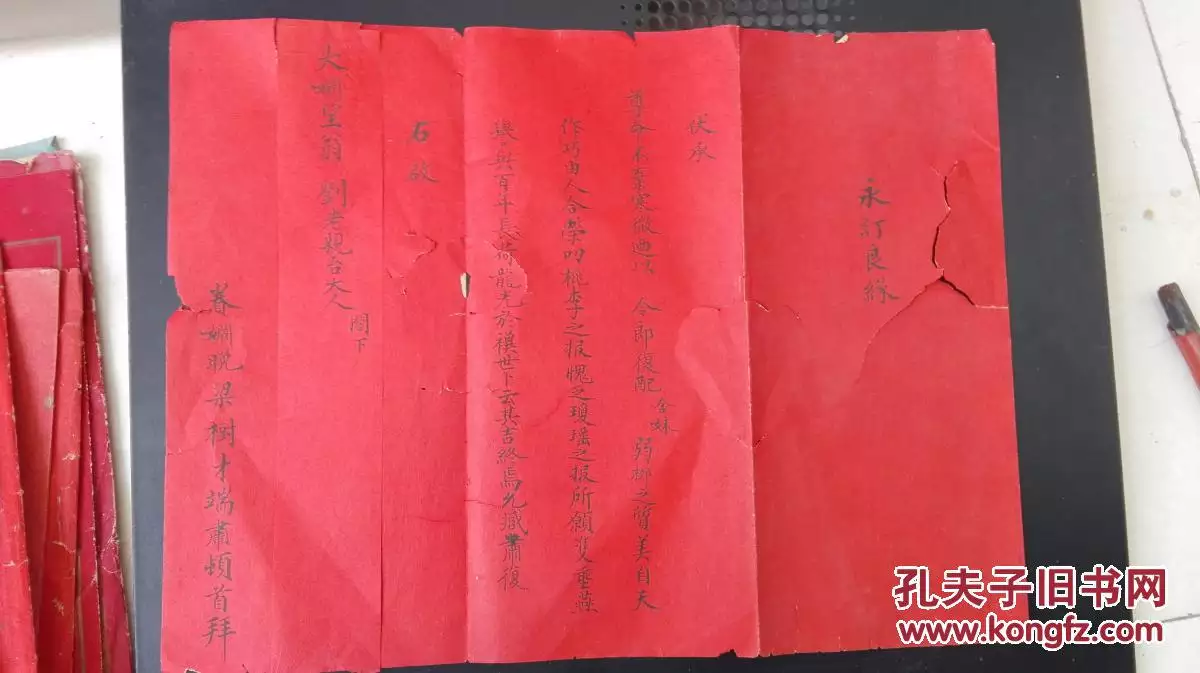 永訂良緣
伏承
尊命不棄寒微迺以 令郎復配 令妹 弱柳之質美自天
作巧由人合榮叨桃李之报愧乏瓊瑶之报所願雙垂燕
與百年長荷龍光於禩世卜云其吉終焉允臧肅復
右啟
大姻望翁 劉老親台大人 閣下
眷姻晚梁樹才端肅頓首拜
孔夫子旧书网
www.kongfz.com